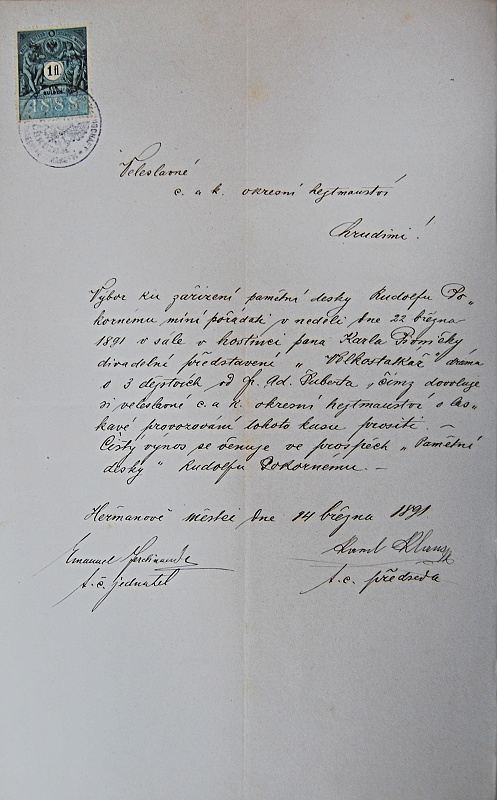 1 fl
1888
Veleslavné
c. a k. okresní hejtmanství
Chrudimi!
Výbor ku zařízení pamětní desky Rudolfu Po„
kornému míní pořádati v neděli dne 22 března
1891 v sále v hostinci pana Karla
divadelní představení „Velkostatkář" drama
o 3 dějstvích od Fr. Ad. Šuberta, čímž dovoluje
si veleslavné c. a k. okresní hejtmanství o las„
kavé provozování tohoto kusu prositi. —
Čistý výnos se věnuje ve prospěch „Pamětní
desky" Rudolfu Pokornému. —
Heřmanově městci dne 14 března 1891
Emanuel
t. č. jednatel
Kamil
t. č. předseda